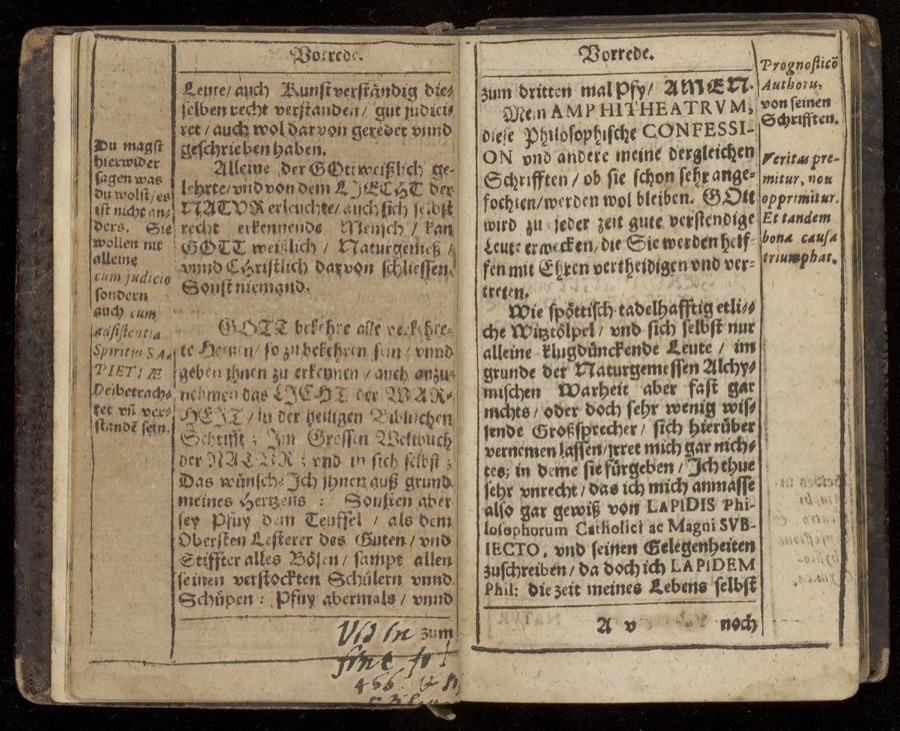 Vorrede.
Leute/ auch Kunstverständig die-
selben recht verstanden/ gut judici-
ret/ auch wol darvon geredet vnnd
geschrieben haben.
Alleine der GOttweißlich ge-
lehrte/ vnd von dem LJECHT der
NATVR erleuchte/ auch sich selbst
recht erkennende Mensch/ kan
GOTT weißlich/ Naturgemeß/
vnnd Christlich darvon schliessen.
Sonst niemand.
GOTT bekehre alle verkehre-
te Hertzen/ so zu bekehren sein/ vnnd
geben ihnen zu erkennen/ auch anzu-
nehmen das LJECHT der WAR-
HEJT/ in der heiligen Biblischen
Schrifft; Jm Grossen Weltbuch
der NATVR; vnd in sich selbst;
Das wünsch Jch jhnen auß grund
meines Hertzens: Sonsten aber
sey Pfuy dem Teuffel/ als dem
Obersten Lesterer des Guten/ vnd
Stiffter alles Bösen/ sampt allen
seinen verstockten Schülern vnnd
Schüpen: Pfuy abermals/ vnnd
zum
Du magst
hierwider
sagen was
du wolst/ es
ist nicht an-
ders. Sie
wollen nit
alleine
cum judicio
sondern
auch cum
adsistentia
Spiritus SA-
PIETIÆ
Deibetrach-
tet vñ ver-
standē sein.
466
Vorrede.
zum dritten mal Pfy/ AMEN.
Mein AMPHITHEATRVM,
diese Philosophische CONFESSI-
ON vnd andere meine dergleichen
Schrifften/ ob sie schon sehr ange-
fochten/ werden wol bleiben. GOtt
wird zu jeder zeit gute verstendige
Leute erwecken/ die Sie werden helf-
fen mit Ehren vertheidigen vnd ver-
treten.
Wie spöttisch tadelhafftig etli-
che Witztölpel/ vnd sich selbst nur
alleine klugdünckende Leute/ im
grunde der Naturgemessen Alchy-
mischen Warheit aber fast gar
nichts/ oder doch sehr wenig wis-
sende Großsprecher/ sich hierüber
vernemen lassen/ jrret mich gar nich-
tes; in deme sie fürgeben/ Jch thue
sehr vnrecht/ das ich mich anmasse
also gar gewiß von LAPIDIS Phi-
losophorum Catholici ac Magni SVB-
IECTO, vnd seinen Gelegenheiten
zuschreiben/ da doch ich LAPIDEM
Phil: die zeit meines Lebens selbst
A v noch
Prognosticō
Authoris,
von seinen
Schrifften.
Veritas pre-
mitur, non
opprimitur.
Et tandem
bona causa
triumphat.